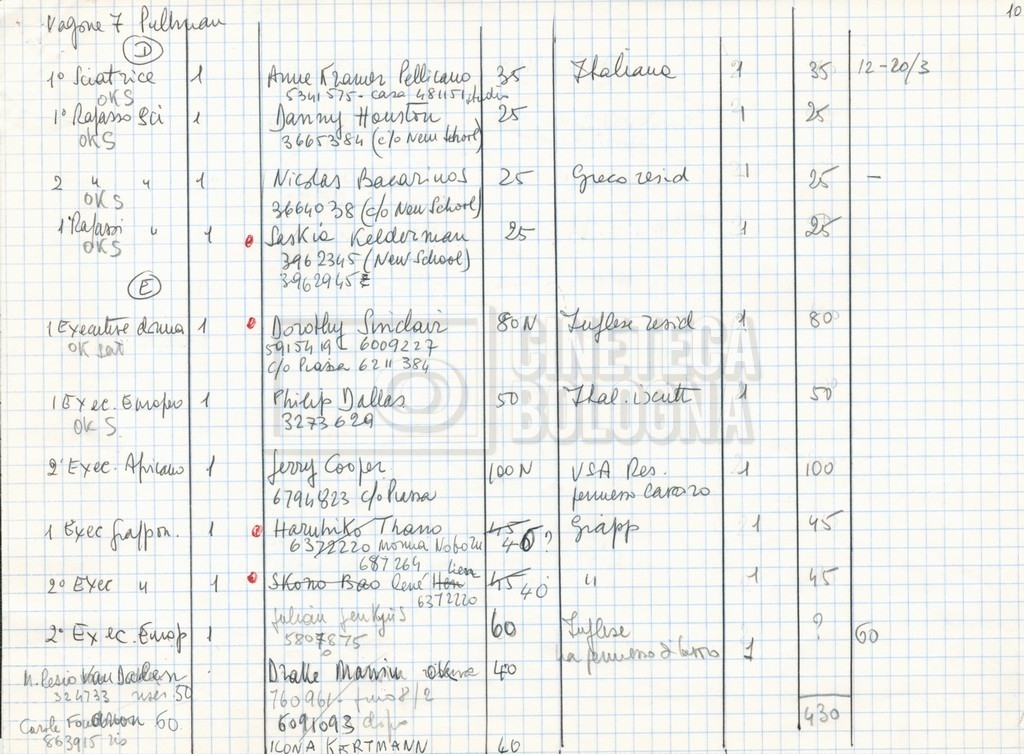 10
Vagone 7 Pullman
D
1° Sciatrice 1 Anne Kramer Pellicano 35 Italiana 1 35 12-20/3
OKS 5341575 - casa 481151 studio
1° Sci 1 Danny Houston 25 1 25
OKS 3665384 (c/o New School)
2 " " 1 Nicolas Bacarinos 25 Greco resid 1 25 -
OKS 3664038 (c/o New School)
1° " 1 Saskia Kelderman 25 1 25
OKS 3962345 (New School)
3962945
E
1 Executive donna 1 Dorothy Sinclair 80N Inglese resid 1 80
OK sat 5915419 - 6009227
c/o Piazza 6211384
1 Exec. Europeo 1 Philip Dallas 50 Ital. 1 50
OK S 3273629
2° Exec. Africano 1 Jerry Cooper 100N USA Res. 1 100
6794823 c/o Piazza permesso
1 Exec Giappon. 1 Haruhiko 45 Giapp 1 45
6372220 Nobozu 40?
687264
2° Exec " 1 Skono Bao 45 40 " 1 45
6372220
2° Exec. Europ 1 60 Inglese ? 60
5807875 ha permesso 1
Dzalle 40
324733 50 760961
Carole 60 6091093 dopo 430
863915
ILONA KARTMANN 40
CINETECA
BOLOGNA